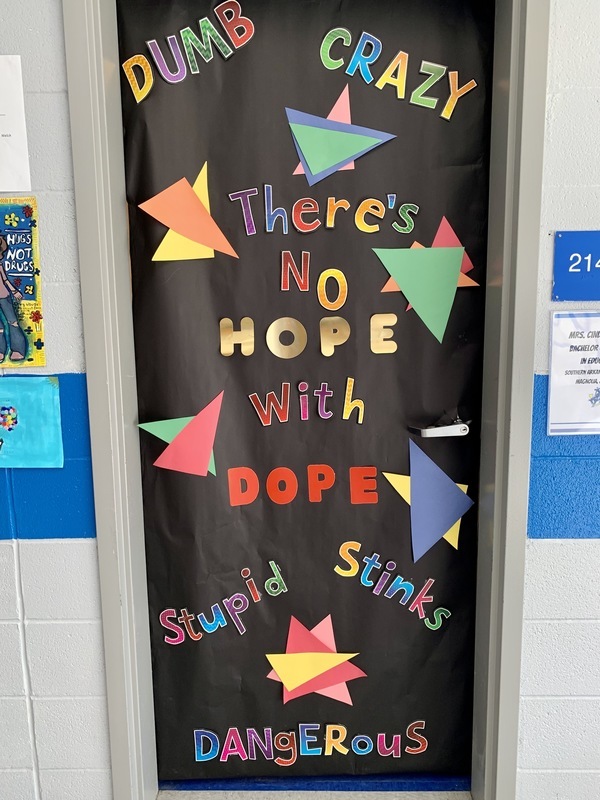 DUMB CRAZY
There's
NO
HOPE
With
DOPE
Stupid Stinks
DANgERouS
HUGS
NOT
DRUGS
214
MRS. CIN
BACHELOR
IN EDUC
SOUTHERN ARKAN
MAGNOLIA,